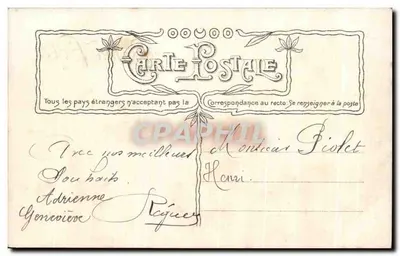 CARTE POSTALE
Tous les pays étrangers n'acceptent pas la Correspondance au recto. Se renseigner à la poste
CPAPHIL
Avec nos meilleurs
Souhaits
Adrienne
Geneviève
Monsieur Piolet
Henri